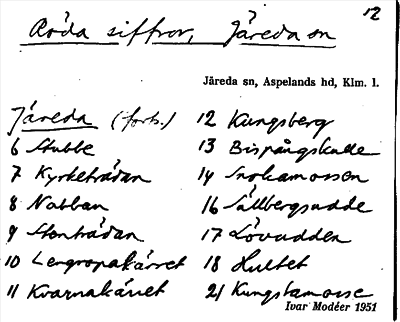 12
Röda siffror, Järeda sn
Järeda sn, Aspelands hd, Klm. l.
Järeda (forts.)
6 Stubbe
7 Kyrketrädan
8 Nabban
9 Stenträdan
10 Lergropakärret
11 Kvarnakärret
12 Kungsberg
13 Bispångskulle
14 Snokamossen
16 Sällbergsudde
17 Lövudden
18 Hultet
21 Kungsbamosse
Ivar Modéer 1951